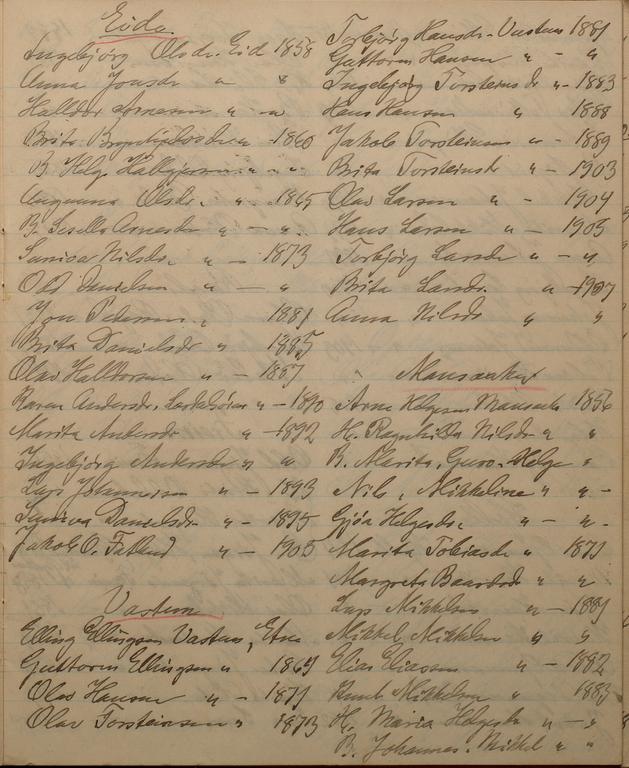 Eide.
Ingebjörg Olsdr. Eid 1858
Anna Jonsdr " "
Halldor Arnesen " - "
Brita " - 1860
B. Helg. " - "
Olsdr. " - 1865
B. Sesella Arnesdr " - "
Suniva Nilsdr. " - 1873
Ole Danielsen " - "
Jon Pedersen " 1881
Brita Danielsdr " 1885
Olav Halldorsen " - 1887
Karen Andersdr. " - 1890
Marita Andersdr " - 1892
Ingebjörg Andersdr " "
Lars Johannesen " - 1893
Suniva Danielsdr. " - 1895
Jakob O. Fatland " - 1905
Vastun
Elling Ellingsen Vastun, Etne
Guttorm Ellingsen " 1869
Olav Hansen " - 1871
Olav Torsteinsen " 1873
Torbjörg Hansdr. Vastun 1881
Guttorm Hansen " - "
Ingebjörg Torsteinsdr " - 1883
Hans Hansen " 1888
Jakob Torsteinsen " - 1889
Brita Torsteinsdr " - 1903
Olav Larsen " - 1904
Hans Larsen " - 1905
Torbjörg Larsdr " - "
Brita Larsdr. " - 1907
Anna Nilsdr " "
Mansaaker
Arne Helgesen Mansaak 1856
H. Ragnhilda Nilsdr " "
B. Marita, Guro, Helge "
Nils, Mikkeline " " -
Gjöa Helgesdr. " - " -
Marita Tobiasdr " 1871
Margreta Baardsdr " "
Lars Mikkelsen " - 1881
Mikkel Mikkelsen " "
Elias Eliassen " - 1882
Mikkelsen " 1883
H. Maria Helgesdr " - "
B. Johannes. Mikkel " "